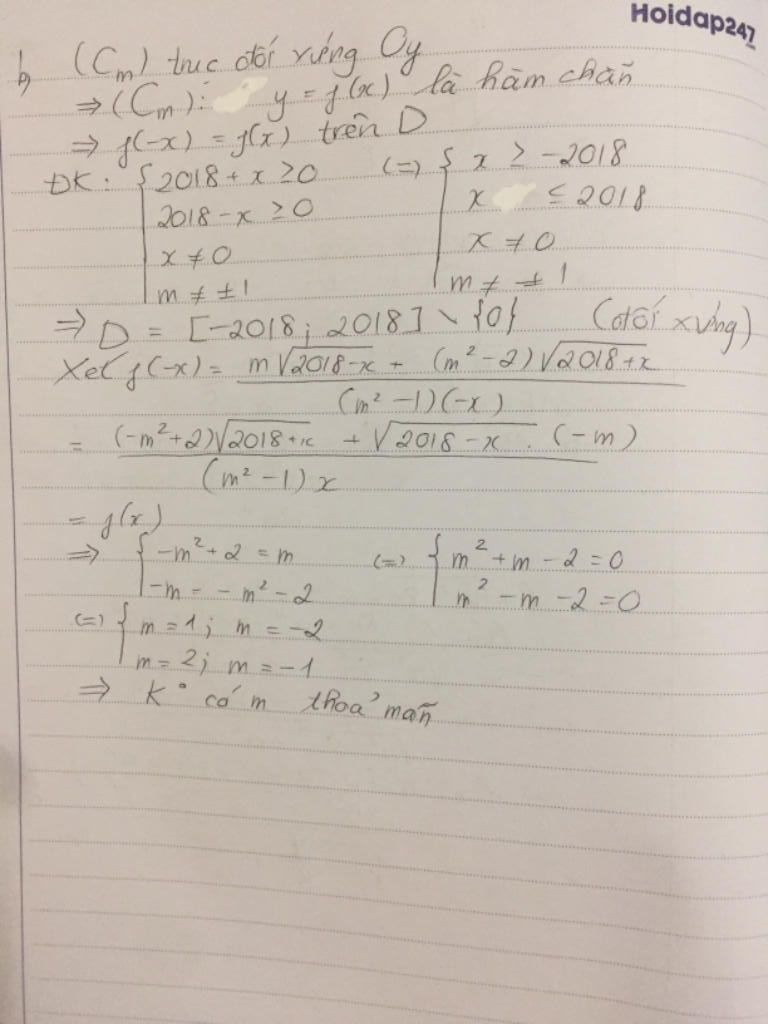 Hoidap247
b, (Cm) trục đối xứng Oy
⇒ (Cm): y = f(x) là hàm chẵn
⇒ f(-x) = f(x) trên D
ĐK: { 2018 + x ≥ 0 (=) { x ≥ -2018
2018 - x ≥ 0 x ≤ 2018
x ≠ 0 x ≠ 0
m ≠ ±1 m ≠ ±1
⇒ D = [-2018; 2018] \ {0} (đối xứng)
Xét f(-x) = m√2018-x + (m² - 2)√2018+x
(m² - 1)(-x)
= (-m² + 2)√2018+x + √2018-x . (-m)
(m² - 1)x
= f(x)
⇒ { -m² + 2 = m (=) { m² + m - 2 = 0
-m = - m² - 2 m² - m - 2 = 0
(=) { m = 1; m = -2
m = 2; m = -1
⇒ K° có m thoả mãn